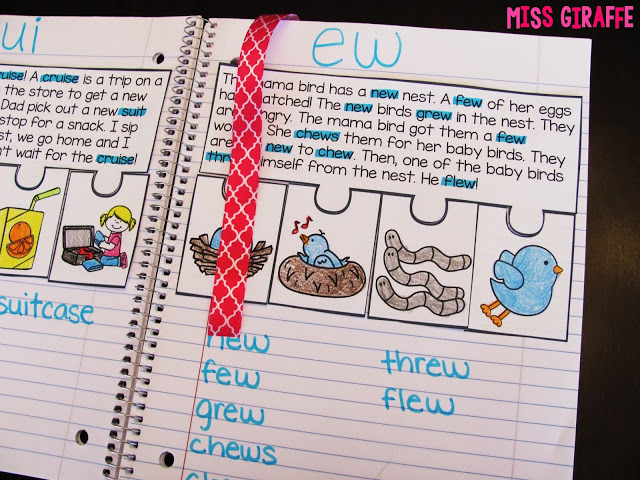 MISS GIRAFFE
ui
A cruise is a trip on a
the store to get a new
Dad pick out a new suit
stop for a snack. I sip
we go home and I
wait for the cruise!
suitcase
ew
mama bird has a new nest. A few of her eggs
The new birds grew in the nest. They
are The mama bird got them a few
She chews them for her baby birds. They
are new to chew. Then, one of the baby birds
himself from the nest. He flew!
new
few
grew
chews
threw
flew